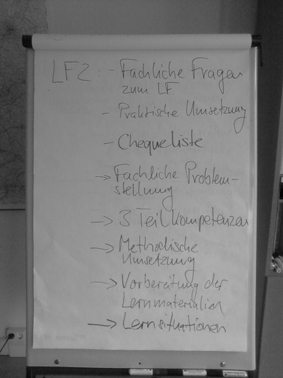 LF2: - Fachliche Fragen
zum LF
- Praktische Umsetzung
- Chequeliste
→ Fachliche Problem-
stellung
→ 3 Teilkompetenzen
→ Methodische
Umsetzung
→ Vorbereitung der
Lernmaterialien
→ Lernsituationen